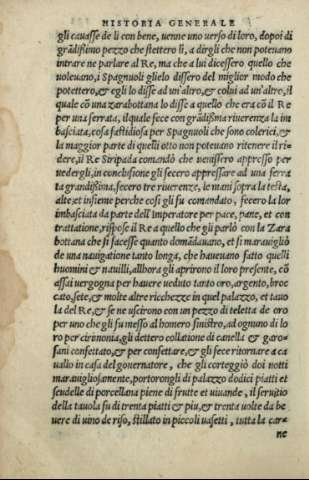 HISTORIA GENERALE
gli cauasse de li con bene, uenne uno uerso di loro, dopoi di
grādißimo pezzo che stettero lì, a dirgli che non poteuano
intrare ne parlare al Re, ma che a lui dicessero quello che
uoleuano, i Spagnuoli glielo dissero del miglior modo che
potettero, & egli lo disse ad un'altro, & colui ad un'altro, il
quale cō una zarabottana lo disse a quello che era cō il Re
per una serrata, il quale fece con grādißma riuerenza la im
basciata, cosa fastidiosa per Spagnuoli che sono colerici, &
la maggior parte di quelli otto non poteuano ritenere il ri-
dere, il Re Stripada comandò che uenissero appresso per
uedergli, in conclusione gli fecero appressare ad una serra
ta grandißima, fecero tre riuerenze, le mani sopra la testa,
alte, et insieme perche cosi gli fu comandato, fecero la lor
imbasciata da parte dell'Imperatore per pace, pane, et con
trattatione, rispose il Re a quello che gli parlò con la Zara
bottana che si facesse quanto domādauano, et si marauigliò
de una nauigatione tanto longa, che haueuano fatto quelli
huomini & nauilli, allhora gli aprirono il loro presente, cō
assai uergogna per hauere ueduto tanto oro, argento, broc
cato, sete, & molte altre ricchezze in quel palazzo, et tauo
la del Re, & se ne uscirono con un pezzo di teletta de oro
per uno che gli fu messo al homero sinistro, ad ognuno di lo
ro per cirimonia, gli dettero collatione di canella & garo-
fani confettato, & per confettare, & gli fece ritornare a ca
uallo in casa del gouernatore, che gli corteggiò doi notti
marauigliosamente, portorongli di palazzo dodici piatti et
scudelle di porcellana piene di frutte et uiuande, il seruitio
della tauola fu di trenta piatti & piu, & trenta uolte da be
uere di uino de riso, stillato in piccoli uasetti, tutta la car-
ne